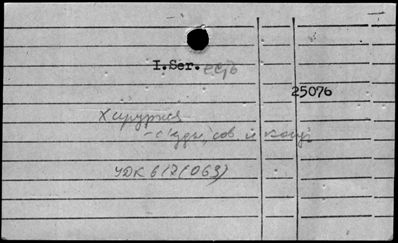 I.Ser. есть
25076
Хирургия
- съезды, сов. и конф.
УДК 617(063)